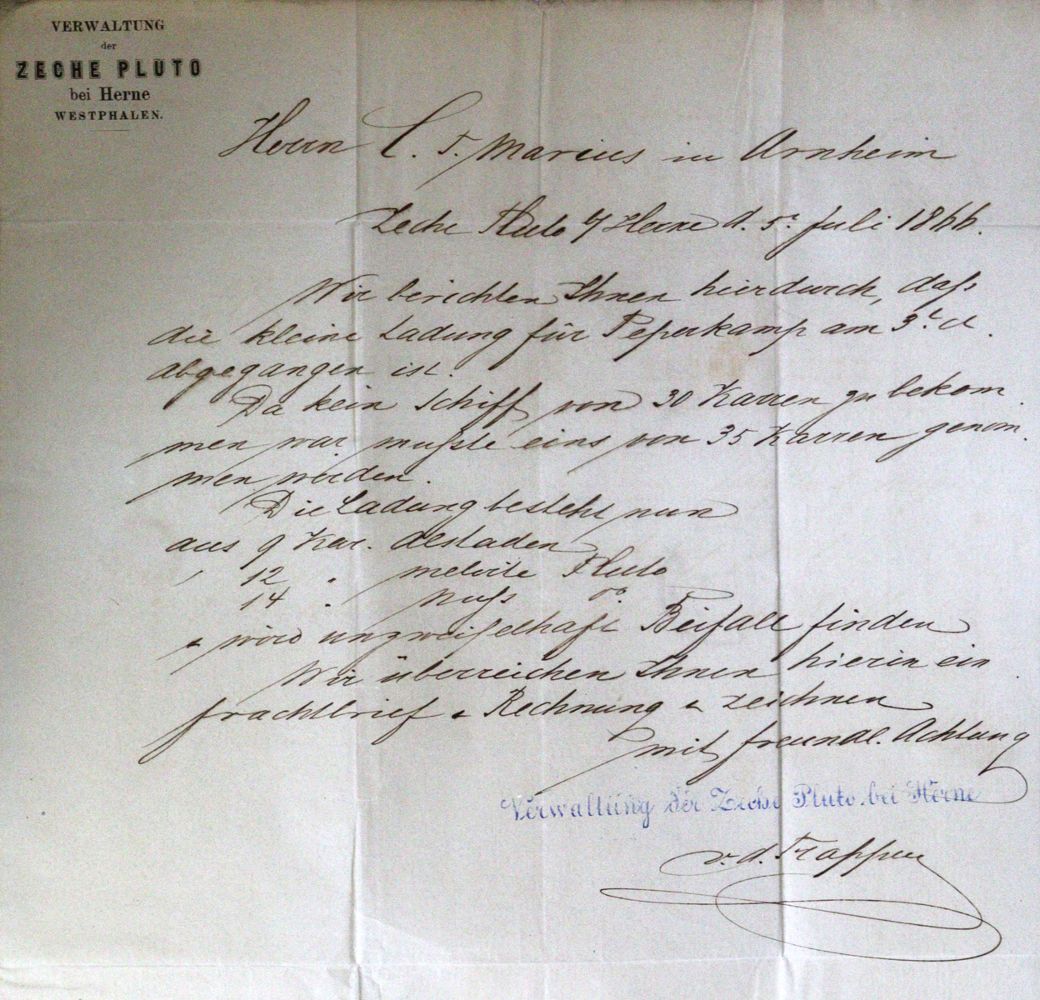 VERWALTUNG
der
ZECHE PLUTO
bei Herne
WESTPHALEN.
Herrn C. F. Marius in Arnheim
Zeche Pluto b/ Herne d. 5t Juli 1866.
Wir berichten Ihnen hierdurch, daß
die kleine Ladung für Peperkamp am 3t d.
abgegangen ist.
Da kein Schiff von 30 Karren zu bekom
men war, mußte eins von 35 Karren genom
men werden.
Die Ladung besteht nun
aus 9 Kar. 
12 " melirte Pluto
14 " Nuß do.
& wird unzweifelhaft Beifall finden
Wir überreichen Ihnen hierin ein
Frachtbrief & Rechnung & zeichnen
mit freundl. Achtung
Verwaltung der Zeche Pluto bei Herne
v. d. Trappen